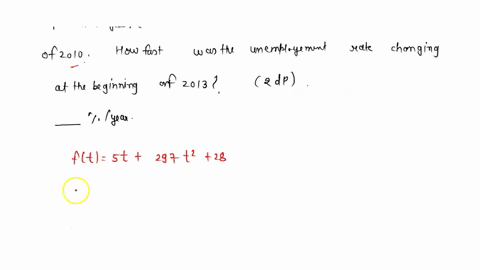 of 2010. How fast was the unemployement rate changing
at the beginning of 2013? (2dp).
____ %/year.
f(t) = 5t + 297t² + 28